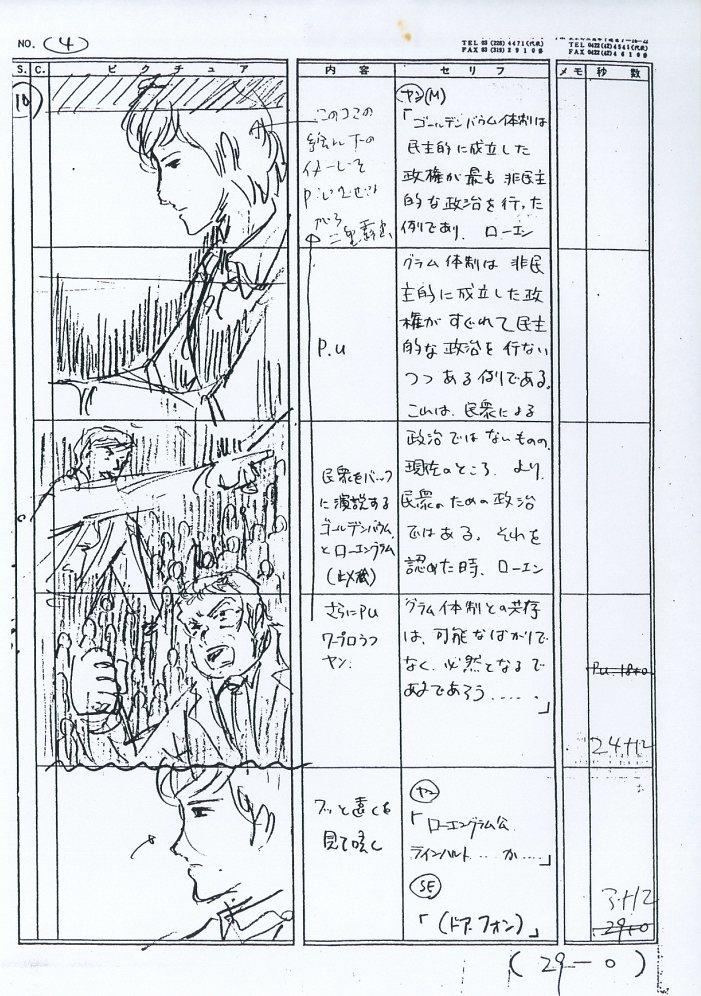 NO. 4
TEL 03 (226) 4471(代表)
TEL 0422(42)4541(代表)
S. C. ピクチュア 内容 セリフ メモ 秒数
このコマの
P.u
民衆をバック
に演説する
ゴールデンバウム
とローエングラム
さらにPU
ワープロうつ
ヤン.
フッと遠くを
見て呟く
ヤン(M)
「ゴールデンバウム体制は
民主的に成立した
政権が最も非民主
的な政治を行った
例であり、ローエン
グラム体制は非民
主的に成立した政
権がすぐれて民主
的な政治を行ない
つつある例である。
これは、民衆による
政治ではないものの、
現在のところ、より、
民衆のための政治
ではある。それを
認めた時、ローエン
グラム体制との共存
は、可能なばかりで
なく、必然となるで
あろう.....」
ヤン
「ローエングラム公
ラインハルト...か....」
SE
「(ドア.フォン)」
24+12
29+0
(29-0)